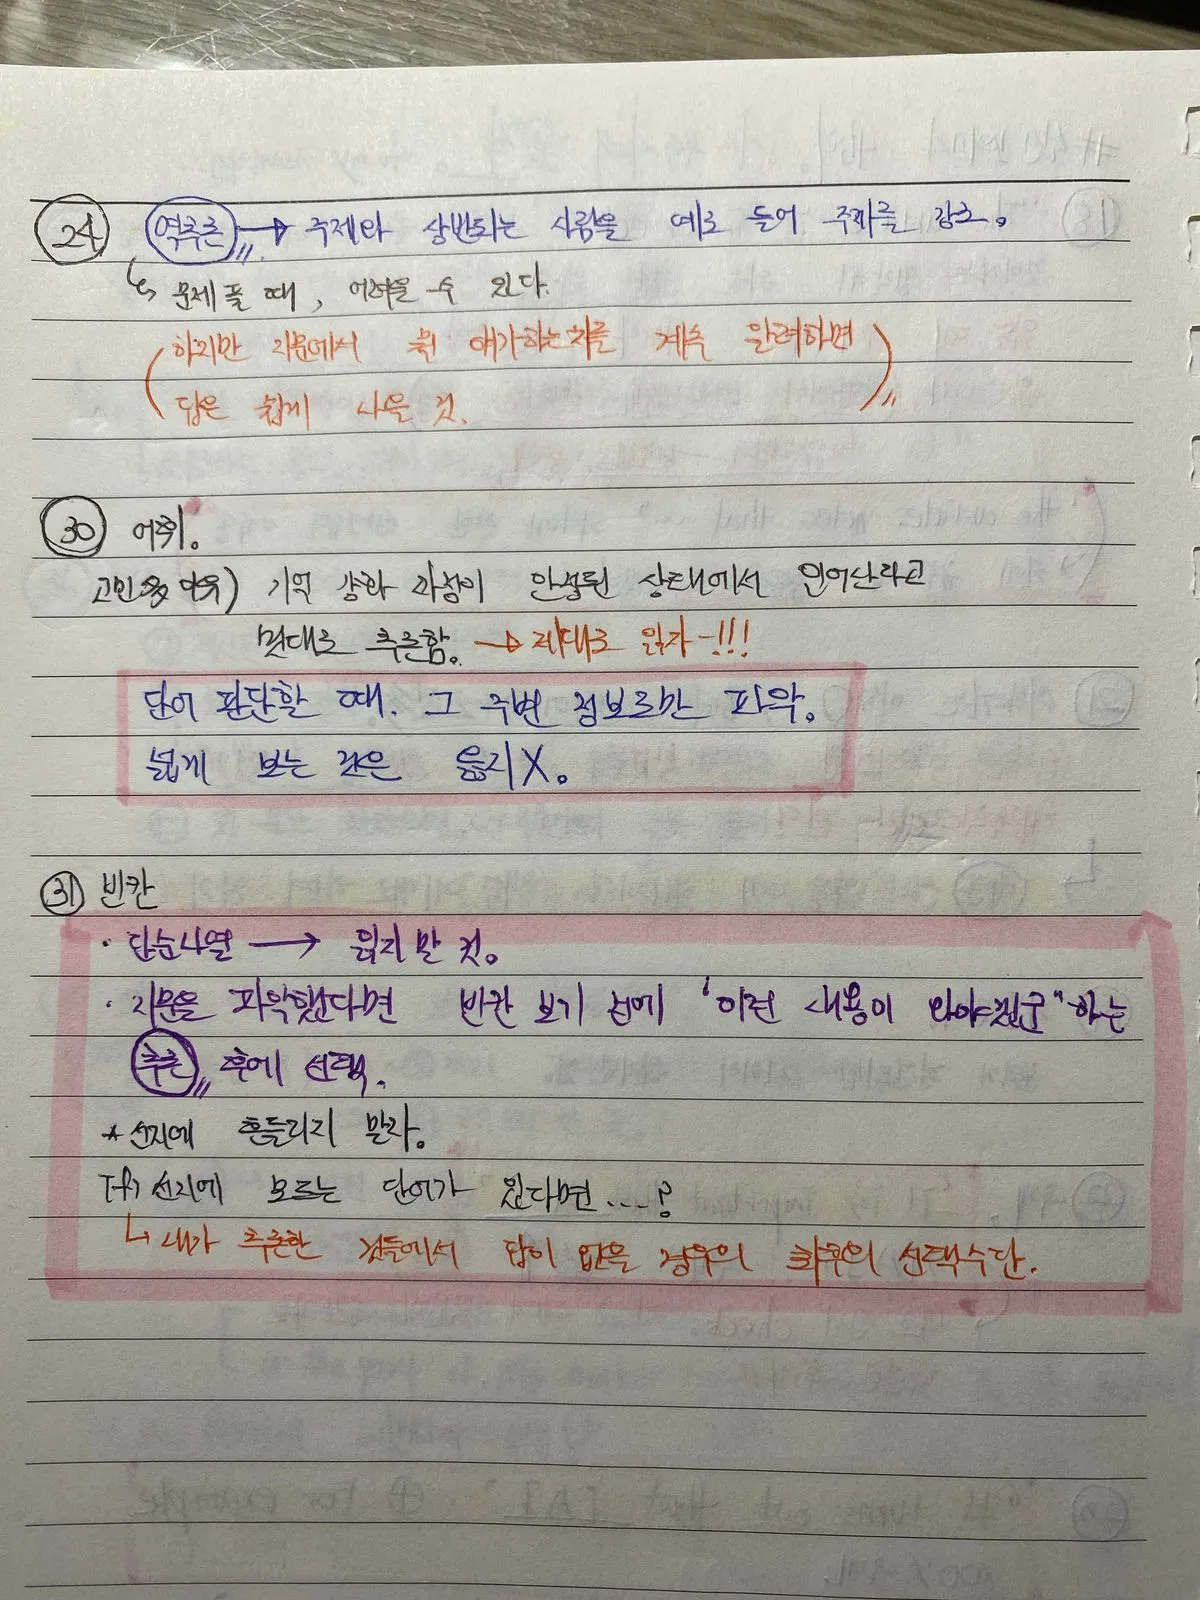 24 역추론 → 주제와 상반되는 사람을 예로 들어 주제를 강조。
↳ 문제 풀 때, 어려울 수 있다.
(하지만 지문에서 뭘 얘기하는지를 계속 알려하면
답은 쉽게 나올 것.)
30 어휘。
고민한 이유) 기억 강화 과정이 안정된 상태에서 일어난다고
멋대로 추론함. → 제대로 읽자-!!!
단어 판단할 때. 그 주변 정보로만 파악.
넓게 보는 것은 옳지X。
31 빈칸
· 단순나열 → 읽지 말 것。
· 지문을 파악했다면 빈칸 보기 전에 '이런 내용이 와야겠군" 하는
추론 후에 선택.
* 선지에 흔들리지 말라。
선지에 모르는 단어가 있다면....?
↳ 내가 추론한 것들에서 답이 없을 경우의 최후의 선택수단.